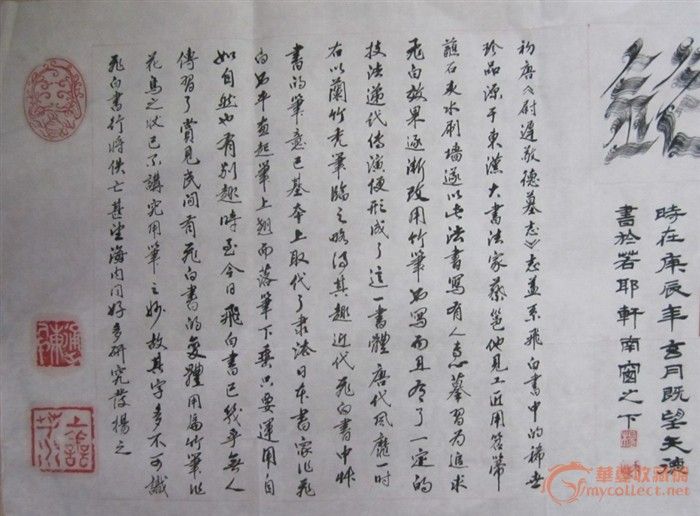 時在庚辰年玄月既望天
書於若耶軒南窗之下
初唐《尉遲敬德墓志》志蓋系飛白書中的稀世
珍品源于東漢大書法家蔡邕他見工匠用笤帚
蘸石灰水刷墻遂以此法書寫有人意摹習為追求
飛白效果逐漸改用竹筆書寫而且有了一定的
技法遞代傳演便形成了這一書體唐代風靡一时
右以蘭竹禿筆臨之略得其趣近代飛白書中
書的筆意已基本上取代了隸法日本書家作飛
白書平直起筆上翹而落筆下垂只要運用自
如自然也有别趣時至今日飛白書已幾乎無人
傳習了嘗見民間有飛白書的變體用扁竹筆作
花鳥之狀已不講究用筆之妙故其字多不可識
飛白書行將佚亡甚望海内同好多研究發揚之
華夏收藏網
mycollect.net